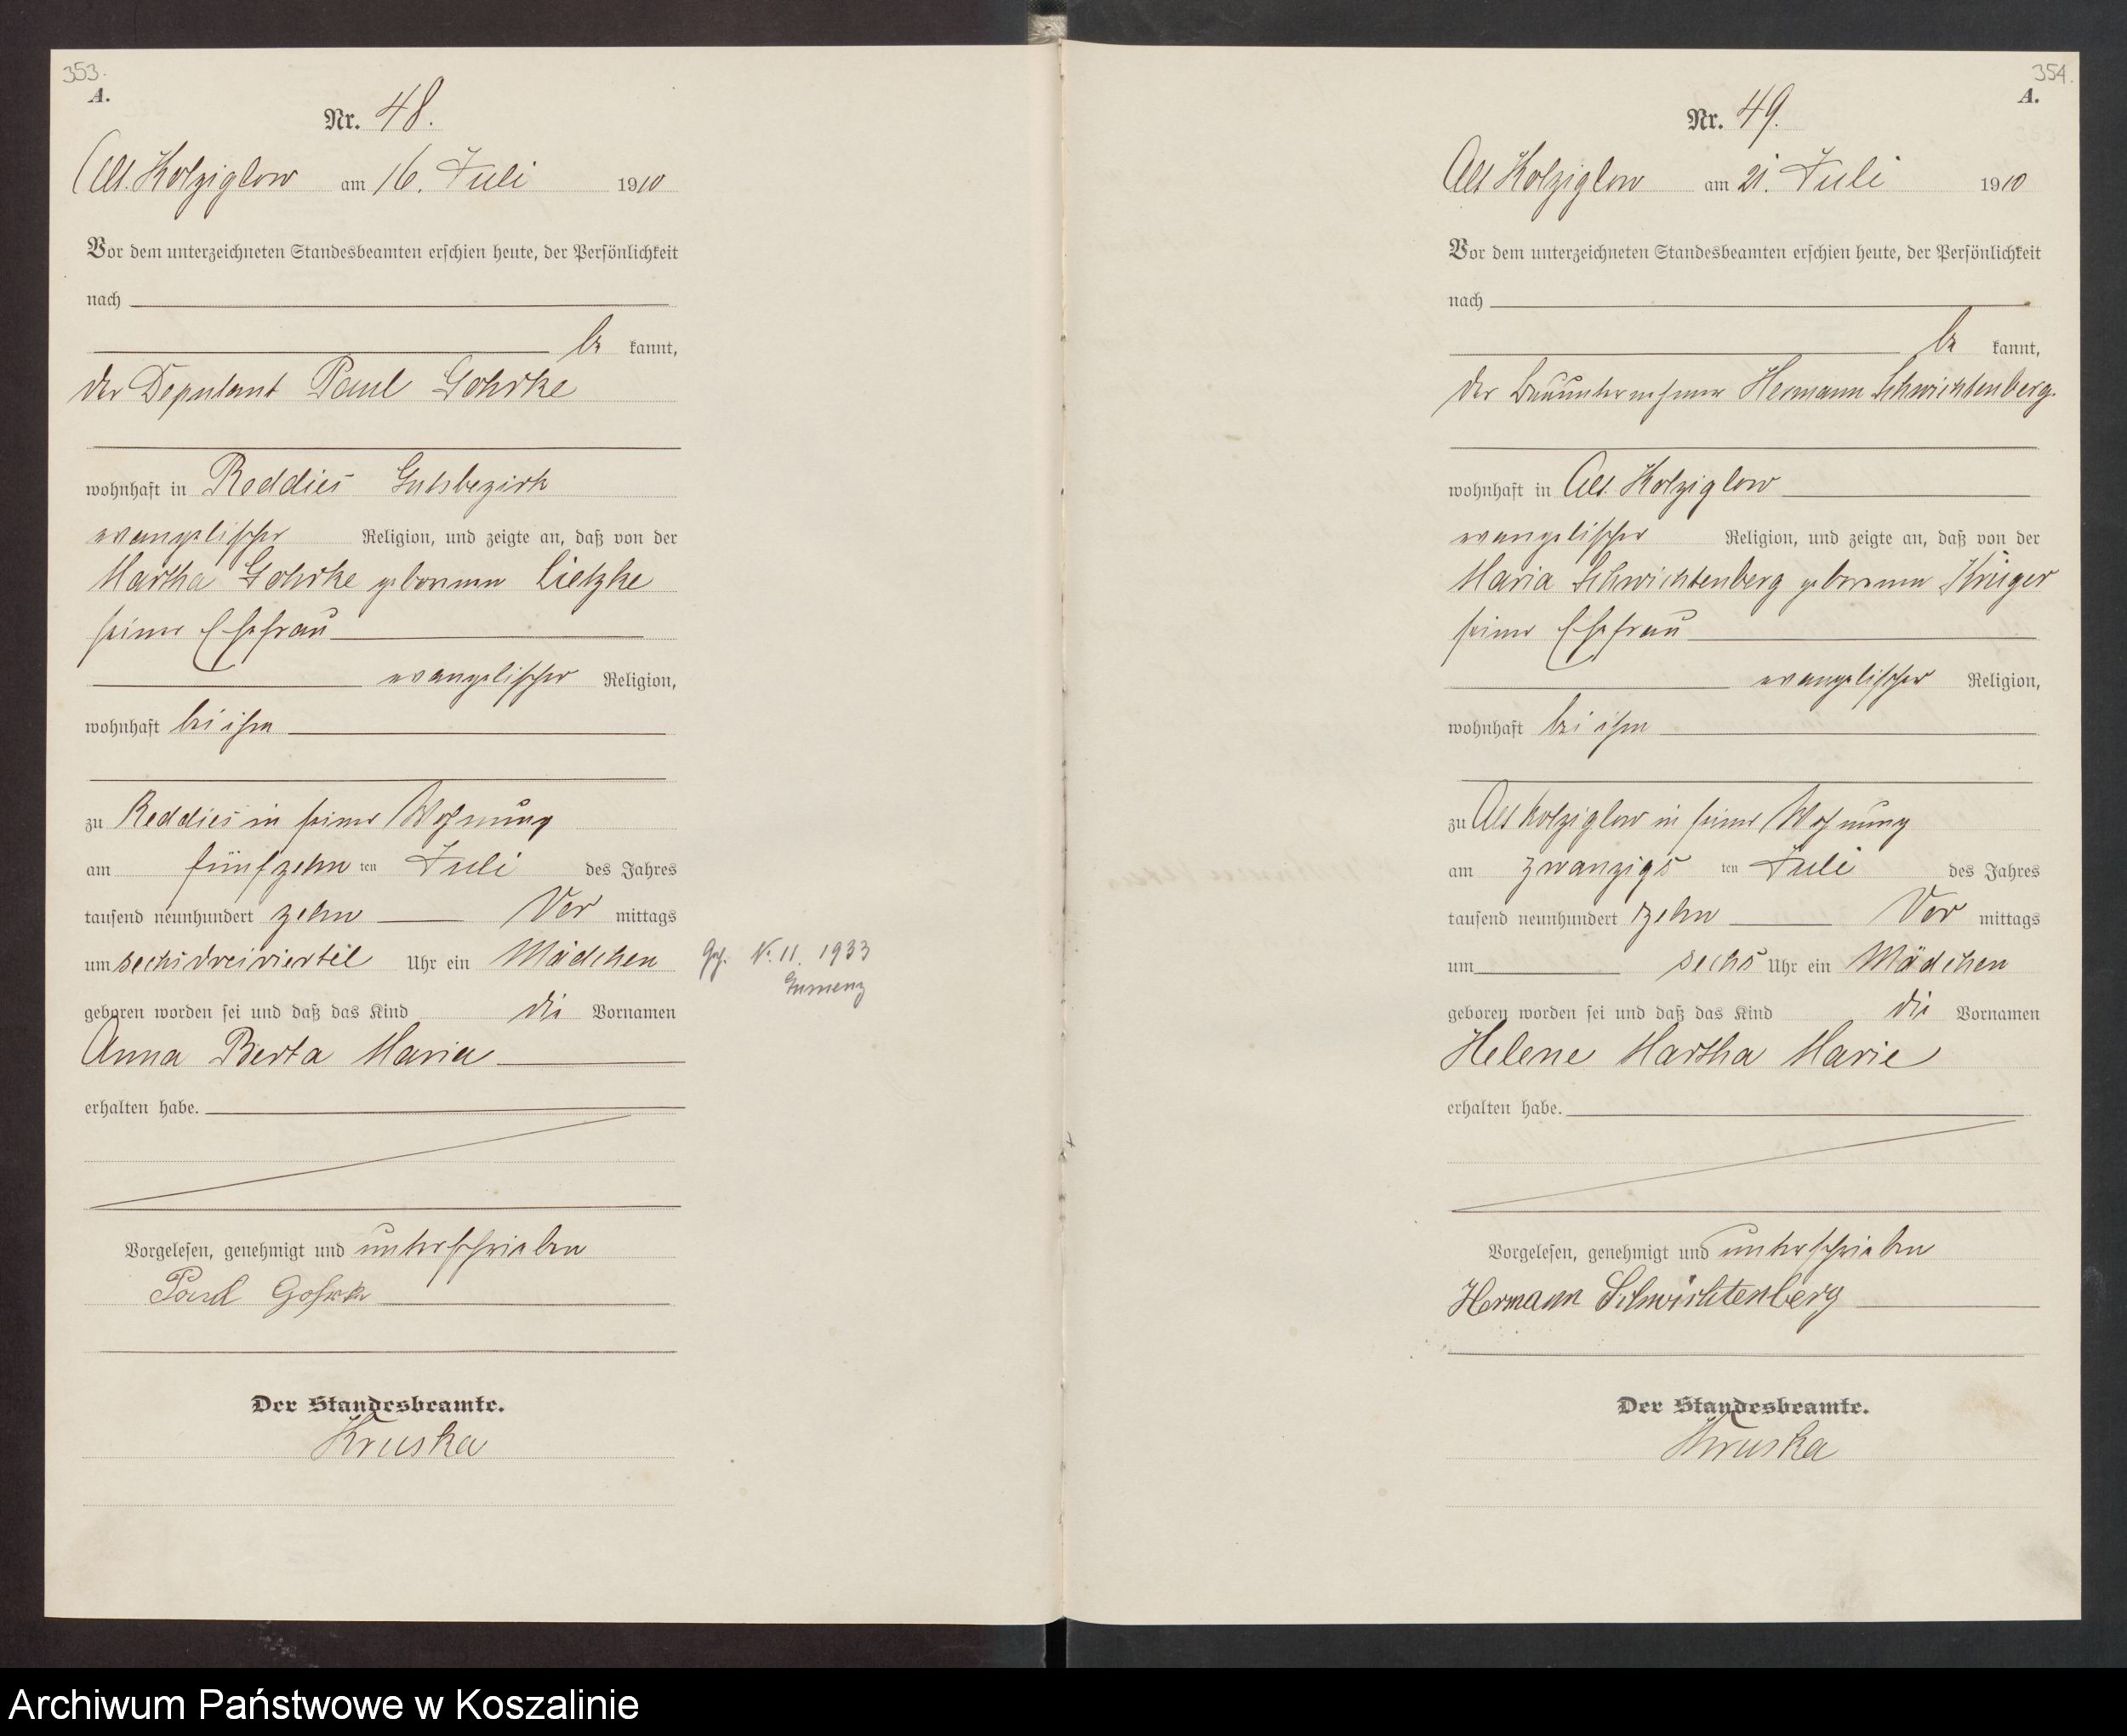 353.
A.
Nr. 48.
Alt. Kolziglow am 16. Juli 1910
Vor dem unterzeichneten Standesbeamten erschien heute, der Persönlichkeit
nach
be kannt,
der Deputant Paul Gohrke
wohnhaft in Reddies Gutsbezirk
evangelischer Religion, und zeigte an, daß von der
Martha Gohrke geborenen Lietzke
seiner Ehefrau
evangelischer Religion,
wohnhaft bei ihm
zu Reddies in seiner Wohnung
am fünfzehn ten Juli des Jahres
tausend neunhundert zehn Vor mittags
um sechsdreiviertel Uhr ein Mädchen
geboren worden sei und daß das Kind die Vornamen
Anna Berta Maria
erhalten habe.
Vorgelesen, genehmigt und unterschrieben
Paul Gohrke
Der Standesbeamte.
Kruska
N. 11. 1933
354.
A.
Nr. 49.
Alt Kolziglow am 21. Juli 1910
Vor dem unterzeichneten Standesbeamten erschien heute, der Persönlichkeit
nach
be kannt,
der Bauunternehmer Hermann Schwichtenberg
wohnhaft in Alt. Kolziglow
evangelischer Religion, und zeigte an, daß von der
Maria Schwichtenberg geborenen Krüger
seiner Ehefrau
evangelischer Religion,
wohnhaft bei ihm
zu Alt Kolziglow in seiner Wohnung
am zwanzigs ten Juli des Jahres
tausend neunhundert zehn Vor mittags
um sechs Uhr ein Mädchen
geboren worden sei und daß das Kind die Vornamen
Helene Martha Marie
erhalten habe.
Vorgelesen, genehmigt und unterschrieben
Hermann Schwichtenberg
Der Standesbeamte.
Kruska
Archiwum Państwowe w Koszalinie